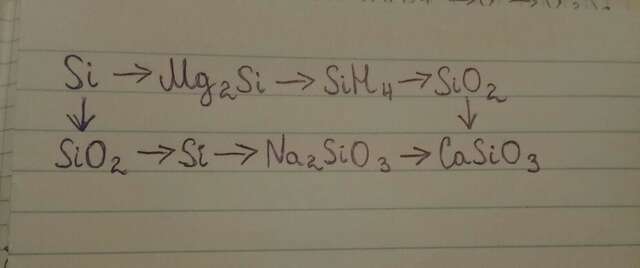 Si → Mg₂Si → SiH₄ → SiO₂
↓ ↓
SiO₂ → Si → Na₂SiO₃ → CaSiO₃